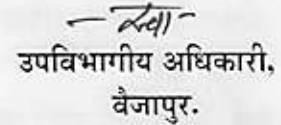 -स्वा-
उपविभागीय अधिकारी,
वैजापुर.